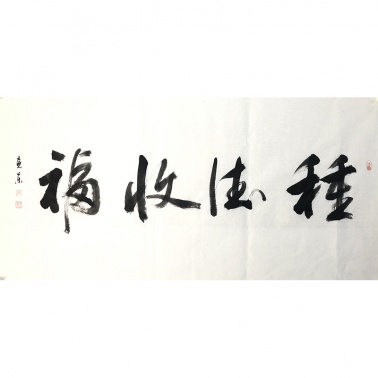 種德收福